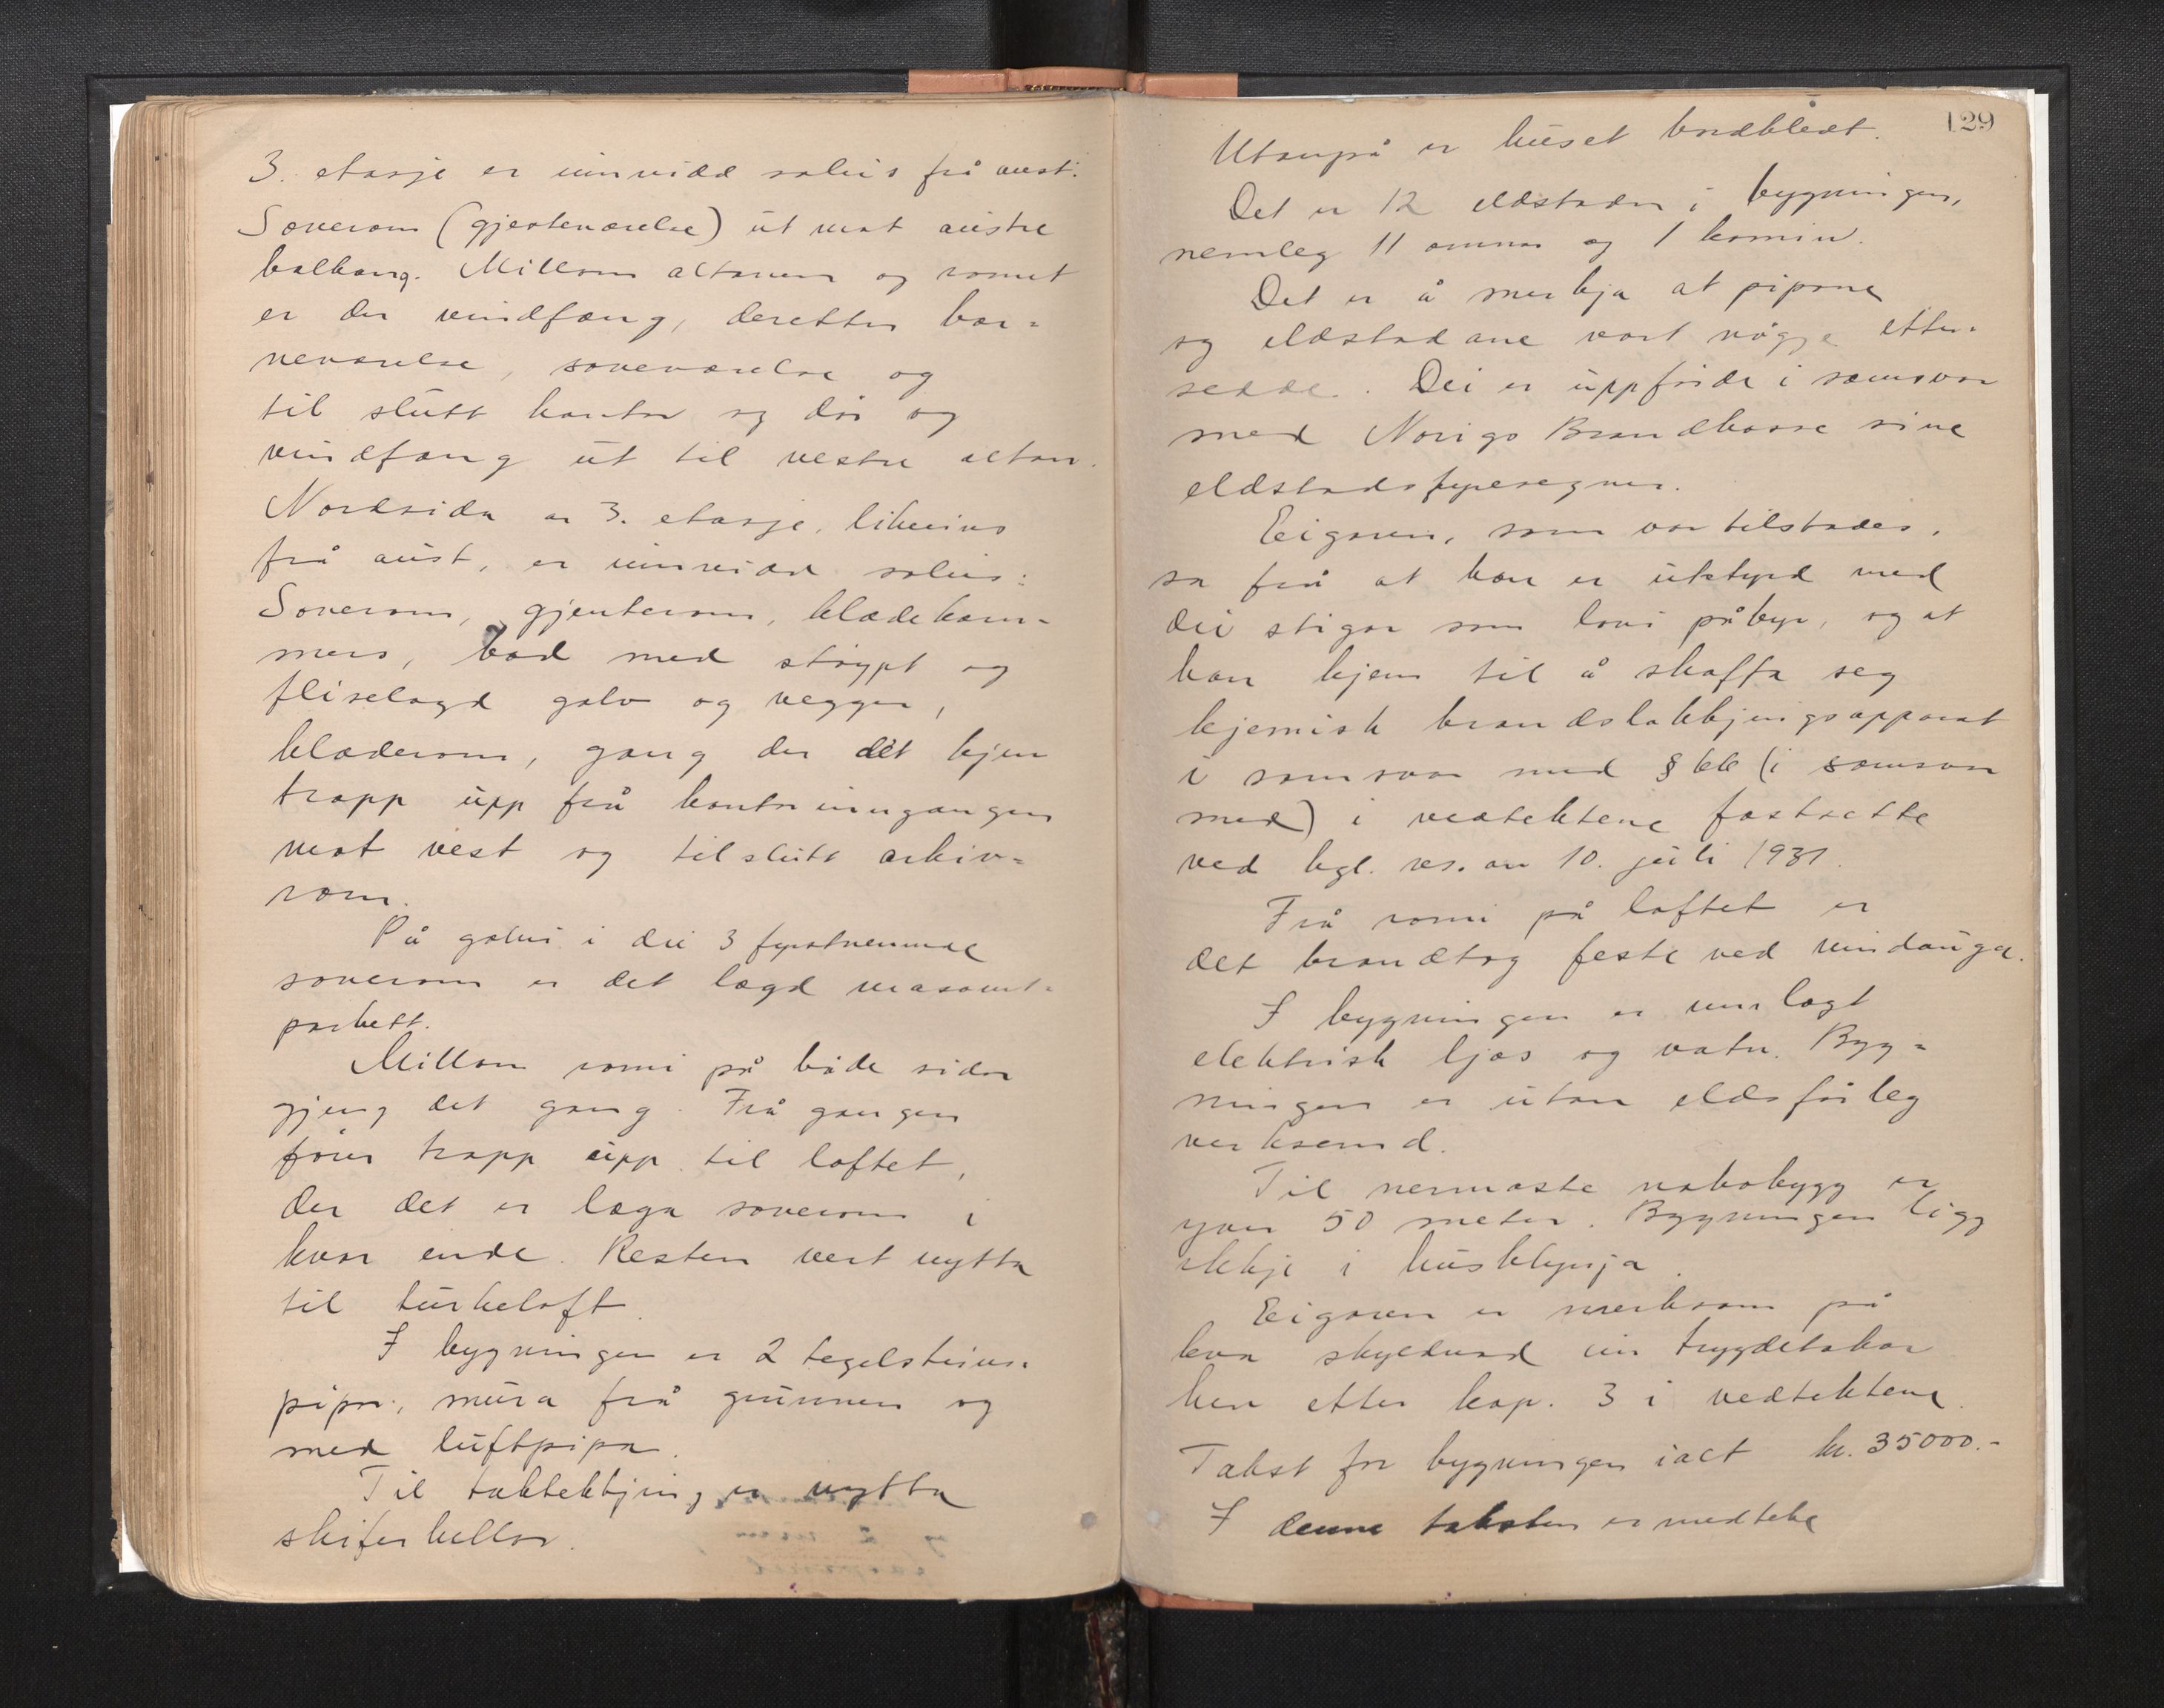 3. etasje er innreidd soleis frå aust:
Soverom (gjesteværelse) ut mot austre
balkong. Millom altanen og romet
er der vindfang, deretter bar=
neværelse, soveværelse og
til slutt kontor og dør og
vindfang ut til vestre altan.
Nordsida av 3. etasje, likeeins
frå aust, er innreidd soleis:
Soverom, gjenterom, klædekam-
mers, bad med støypt og
fliselagd golv og vegger,
klæderom, gang der det kjem
trapp upp frå kontorinngangen
mot vest og til slutt arkiv=
rom.
På golvi i dei 3 fyrstnemnde
soverom er det lagd masonit=
parkett.
Millom romi på både sidor
gjeng det gang. Frå gangen
fører trapp upp til loftet,
der det er laga soverom i
kvar ende. Resten vert nytta
til turkeloft.
I bygningen er 2 tegelsteins-
pipor, mura frå grunnen og
med luftpipa.
Til taktekkjing er nytta
skiferhellor.
129
Utanpå er huset bordklædt.
Det er 12 eldstader i bygningen,
nemleg 11 omnar og 1 kamin.
Det er å merkja at pipone
og eldstadane vart nøgje etter-
sedde. Dei er uppførde i samsvar
med Norigs Brandkasse sine
eldstadsfyresegner.
Eigaren, som var tilstades,
sa frå at han er utstyrd med
dei stigar som lovi påbyr, og at
han kjem til å skaffa seg
kjemisk brandsløkkjingsapparat
i samsvar med § 66 (i samsvar
med) i vedtektene fastsette
ved kgl. res. av 10. juli 1931.
Frå romi på loftet er
det brandtog feste ved vindauga.
I bygningen er innlagt
elektrisk ljos og vatn. Byg=
ningen er utan eldsfårleg
verksemd.
Til nærmaste nabobygg er
yver 50 meter. Bygningen ligg
ikkje i husklyngja.
Eigaren er merksam på
kva skyldnad ein trygdetakar
hev etter kap. 3 i vedtektene.
Takst for bygningen ialt kr. 35000.-
I denne taksten er medteke